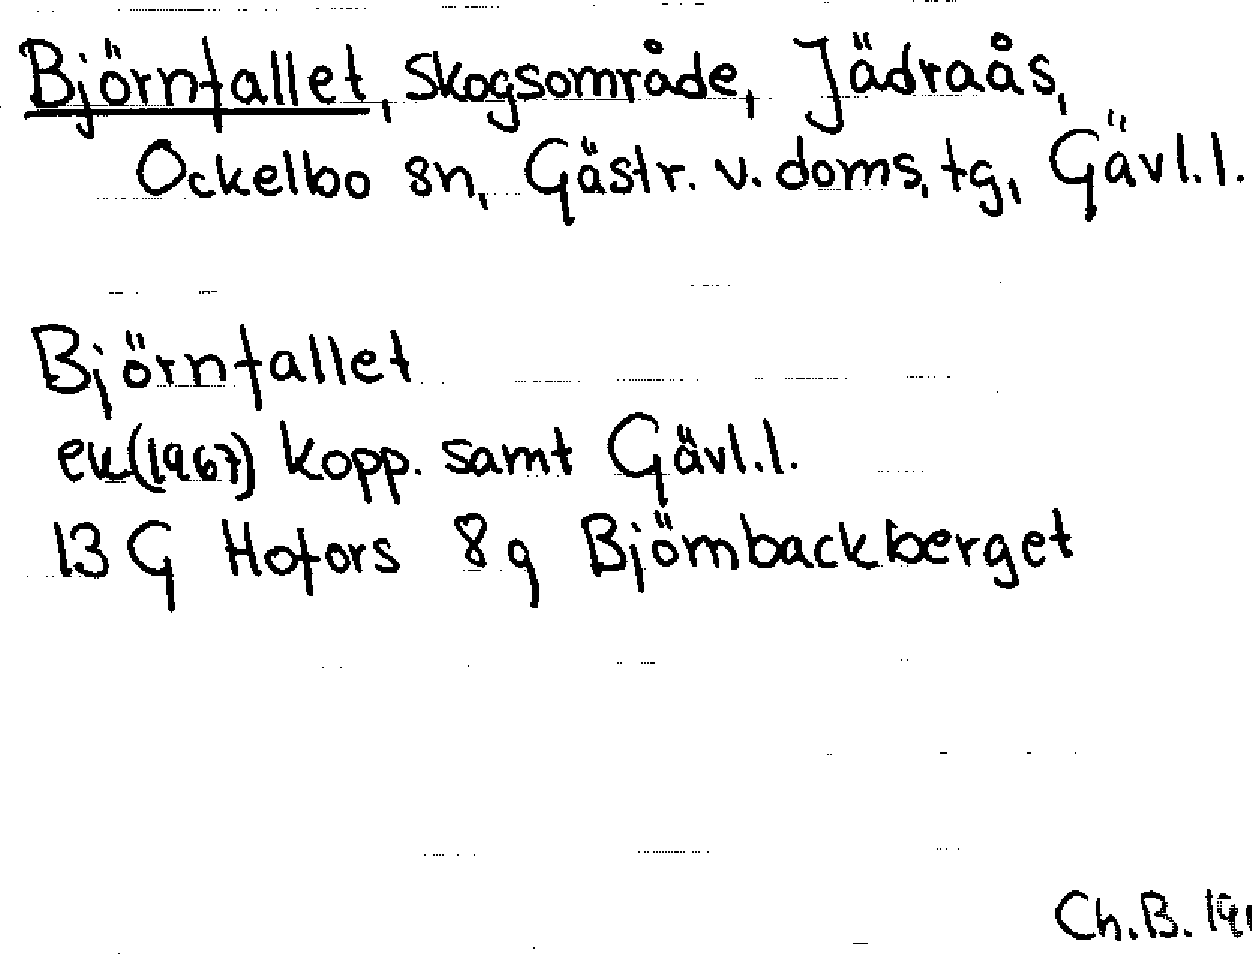 Björnfallet, Skogsområde, Jädraås,
Ockelbo sn, Gästr. v. doms. tg, Gävl.l.
Björnfallet
ek(1967) Kopp. samt Gävl.l.
13 G Hofors 8g Björnbackberget
Ch.B.